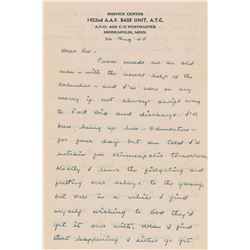 SERVICE CENTER
1452nd A.A.F. BASE UNIT, A.T.C.
A.P.O. 462 C-O POSTMASTER
MINNEAPOLIS, MINN.
30 Aug 45
Dear Sis -
Peace made me an old
man - with the usual help of the
calendar - and I'm now on my
merry if not always swift way
to Fort Dix and discharge. I've
been hung up here - Edmonton -
for four days but am told I'd
entrain for Minneapolis tomorrow.
Really I hear the fidgeting and
fretting over delays to the young,
but once in a while I find
myself wishing to God they'd
get it over with. When I find
that happening I either go get